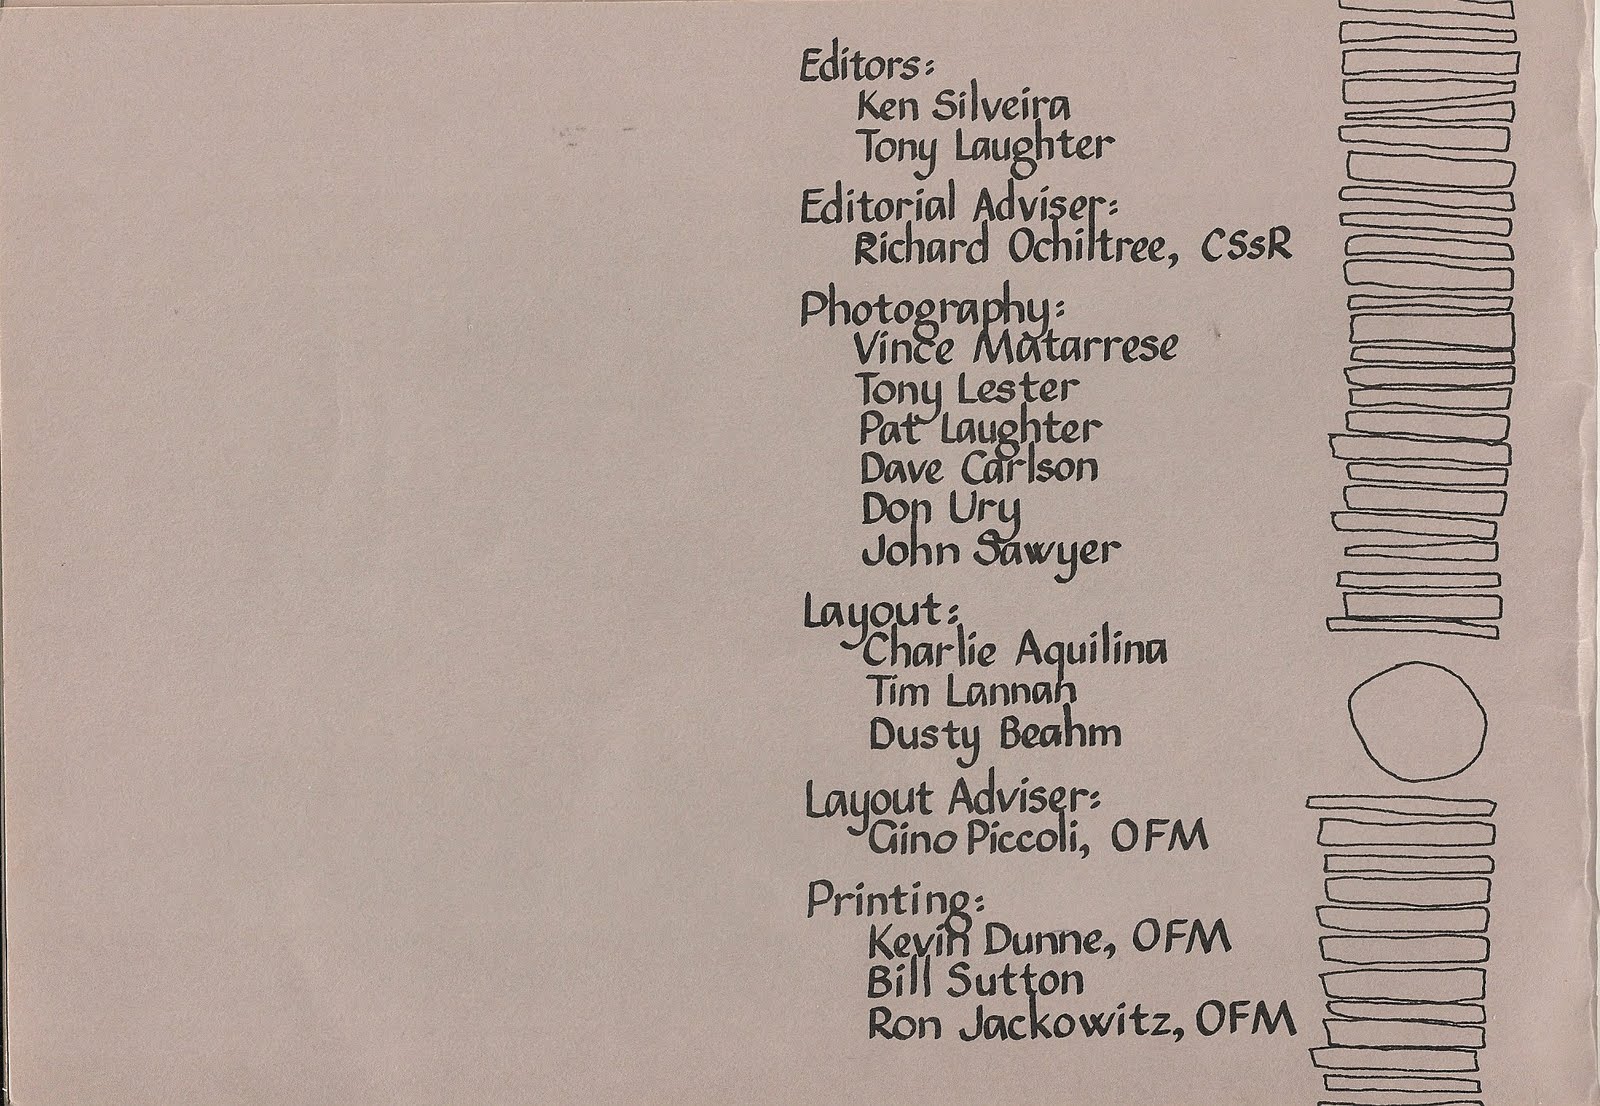 Editors:
Ken Silveira
Tony Laughter
Editorial Adviser:
Richard Ochiltree, CSsR
Photography:
Vince Matarrese
Tony Lester
Pat Laughter
Dave Carlson
Don Ury
John Sawyer
Layout:
Charlie Aquilina
Tim Lannan
Dusty Beahm
Layout Adviser:
Gino Piccoli, OFM
Printing:
Kevin Dunne, OFM
Bill Sutton
Ron Jackowitz, OFM